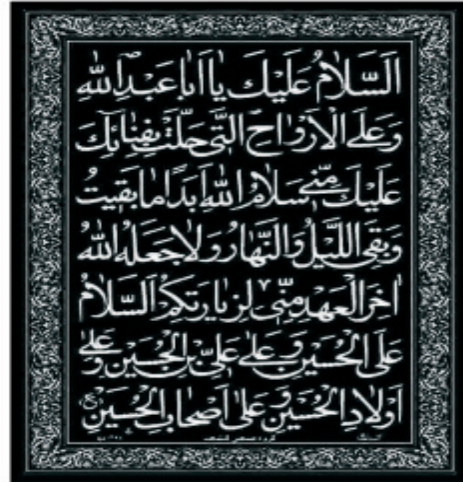 اَلسَّلامُ عَلَيْكَ يا اَبا عَبْدِ اللهِ
وَعَلَى الْاَرْواحِ الَّتى حَلَّتْ بِفِنائِكَ
عَلَيْكَ مِنّى سَلامُ اللهِ اَبَدًا ما بَقيتُ
وَبَقِىَ اللَّيْلُ وَالنَّهارُ وَلا جَعَلَهُ اللهُ
اخِرَ الْعَهْدِ مِنّى لِزِيارَتِكُمْ اَلسَّلامُ
عَلَى الْحُسَيْنِ وَعَلى عَلِىِّ بْنِ الْحُسَيْنِ وَعَلى
اَوْلادِ الْحُسَيْنِ وَعَلى اَصْحابِ الْحُسَيْنِ